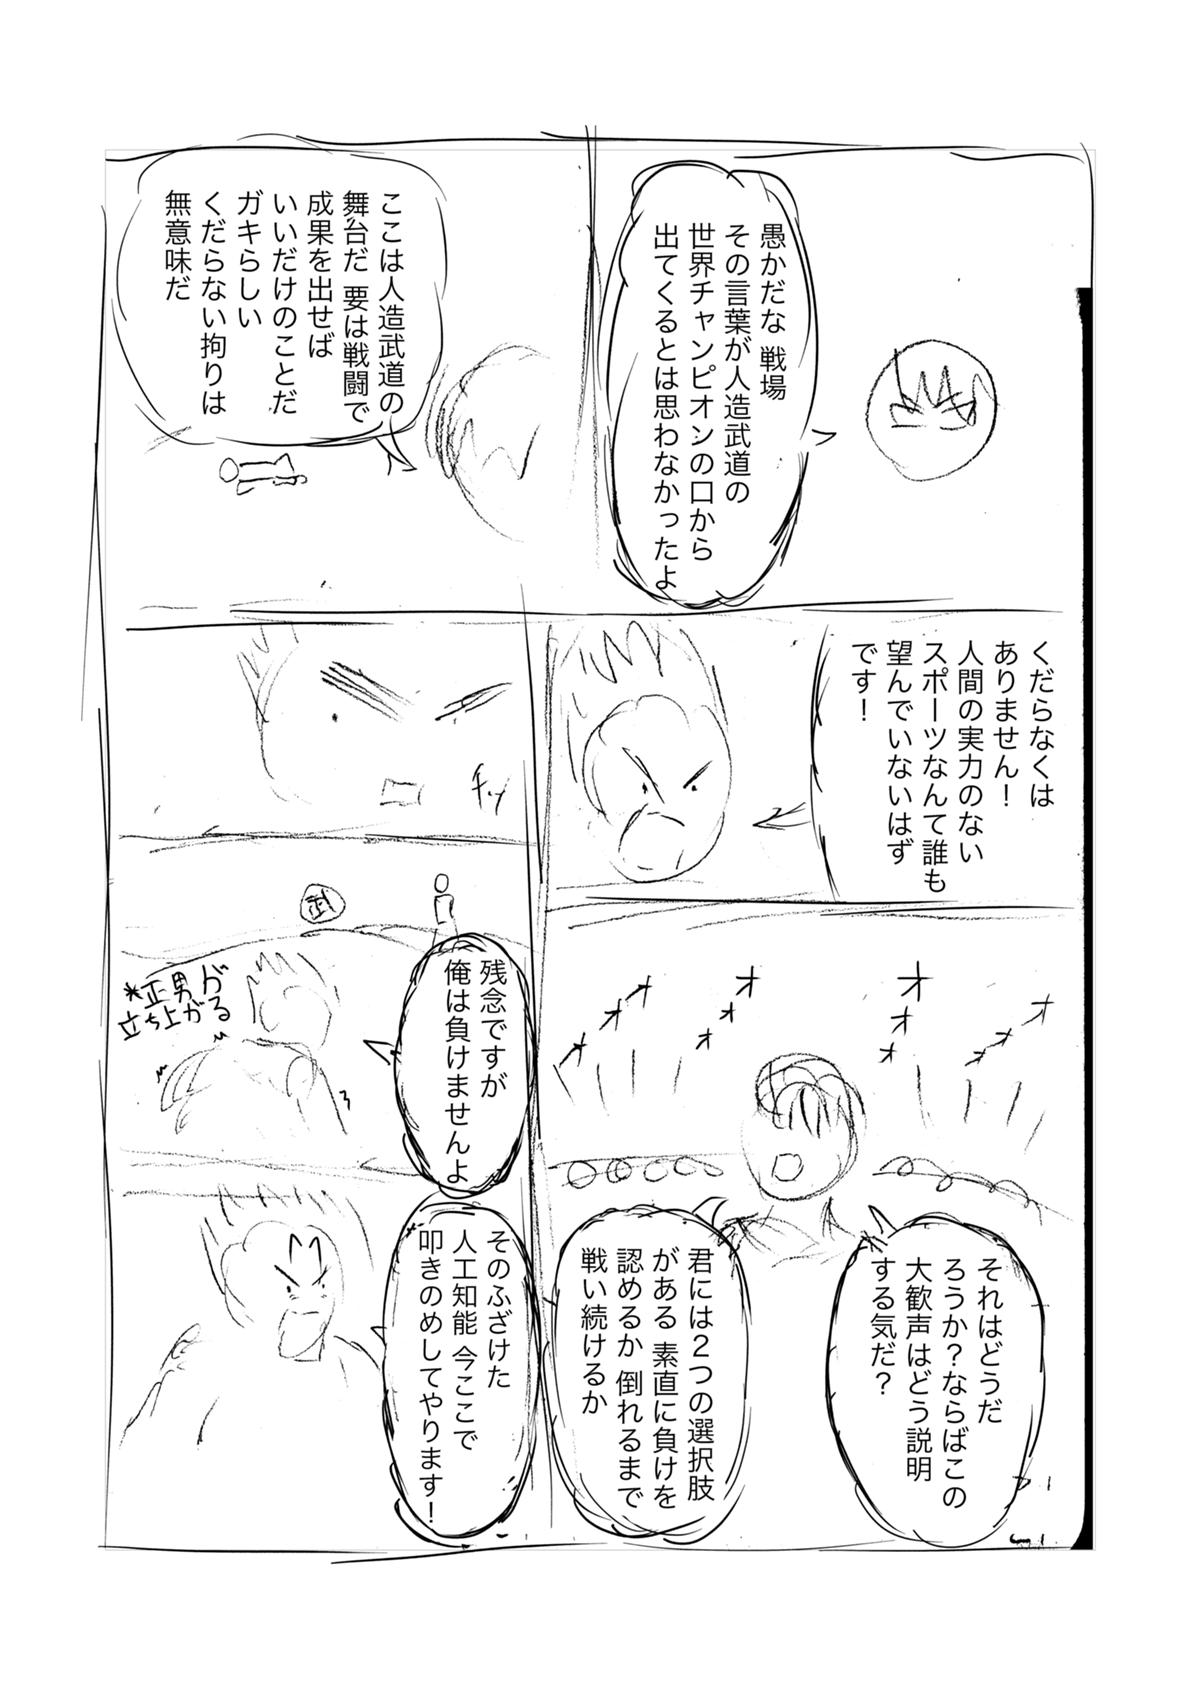 愚かだな 戦場
その言葉が人造武道の
世界チャンピオンの口から
出てくるとは思わなかったよ
ここは人造武道の
舞台だ 要は戦闘で
成果を出せば
いいだけのことだ
ガキらしい
くだらない拘りは
無意味だ
くだらなくは
ありません!
人間の実力のない
スポーツなんて誰も
望んでいないはず
です!
チッ
オオオ
オオオ
オオオ
オオオ
それはどうだ
ろうか?ならばこの
大歓声はどう説明
する気だ?
君には2つの選択肢
がある 素直に負けを
認めるか 倒れるまで
戦い続けるか
武
*正男が
立ち上がる
残念ですが
俺は負けませんよ
そのふざけた
人工知能 今ここで
叩きのめしてやります!